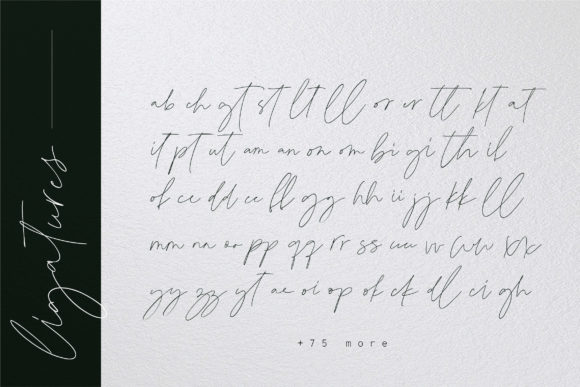 ligatures
ab ch gt st lt ll or er tt kt at
it pt ut am an on om bi gi th il
of cc dd ee fl gg hh ii jj kk ll
mm nn oo pp qq rr ss uu vv ww xx
yy zz yt ae oi op ok ck dl ci gh
+75 more